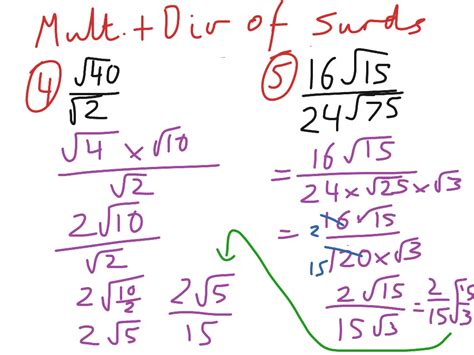 Mult. + Div of Surds
④ √40 / √2
√4 × √10 / √2
2√10 / √2
2√(10/2)
2√5
⑤ 16√15 / 24√75
= 16√15 / 24 × √25 × √3
= 2 16√15 / 15 120 × √3
2√15 / 15√3 = 2/15 √(15/3)
2√5 / 15